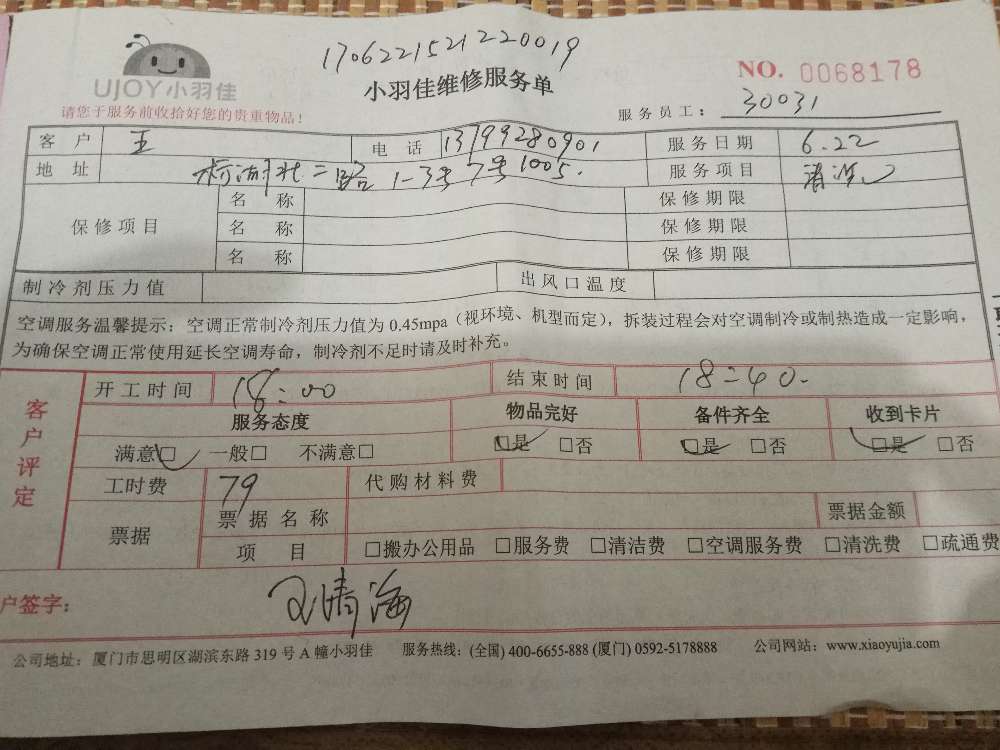 1706221521220019
UJOY小羽佳
小羽佳维修服务单
NO. 0068178
请您于服务前收拾好您的贵重物品！
服务员工： 30031
客 户 王 电 话 13799280901 服务日期 6.22
地 址 二路 1-3号7号1005. 服务项目 清洗
保修项目 名 称 保修期限
名 称 保修期限
名 称 保修期限
制冷剂压力值 出风口温度
空调服务温馨提示：空调正常制冷剂压力值为 0.45mpa（视环境、机型而定），拆装过程会对空调制冷或制热造成一定影响，
为确保空调正常使用延长空调寿命，制冷剂不足时请及时补充。
客户评定
开工时间 18:00 结束时间 18:40.
服务态度 物品完好 备件齐全 收到卡片
满意□ 一般□ 不满意□ □是 □否 □是 □否 □是 □否
工时费 79 代购材料费
票据 票据名称 票据金额
项 目 □搬办公用品 □服务费 □清洁费 □空调服务费 □清洗费 □疏通费
户签字： 王清海
公司地址：厦门市思明区湖滨东路 319 号 A 幢小羽佳 服务热线：(全国) 400-6655-888 (厦门) 0592-5178888 公司网站：www.xiaoyujia.com